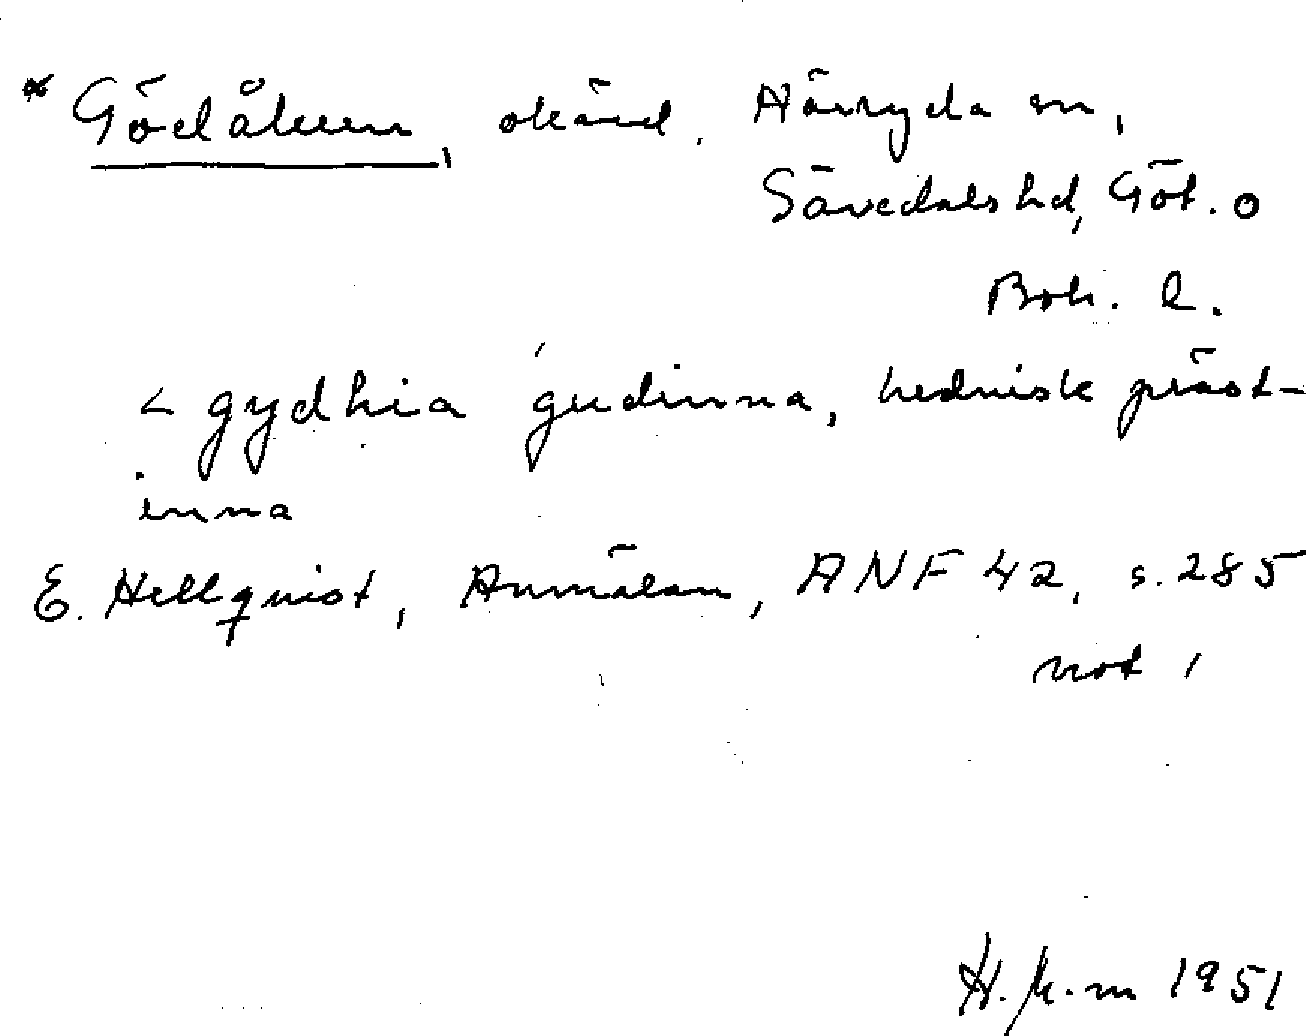 * Gödåkern, okänd. Härryda sn,
Sävedals hd, Göt. o
Boh. l.
< gydhia 'gudinna, hednisk präst-
inna
E. Hellquist, Anmälan, ANF 42, s. 285
not 1
H. k. m 1951